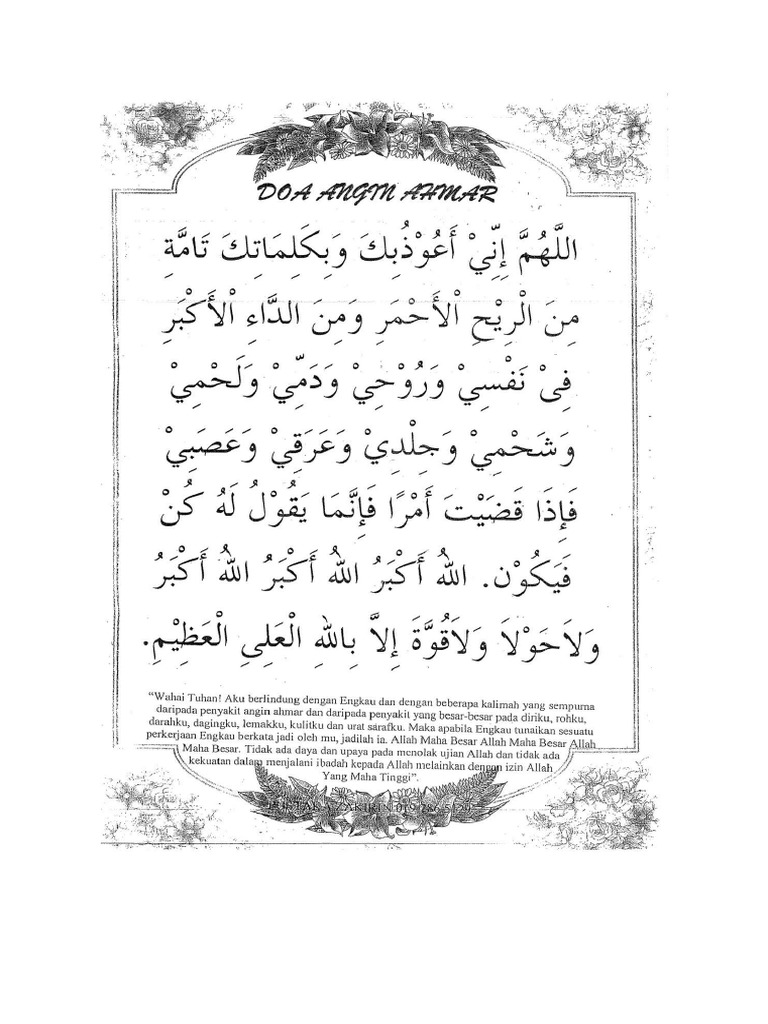 DOA ANGIN AHMAR
اللَّهُمَّ إِنِّيْ أَعُوْذُبِكَ وَبِكَلِمَاتِكَ تَامَّةِ
مِنَ الْرِيْحِ اْلأَحْمَرِ وَمِنَ الدَّاءِ اْلأَكْبَرِ
فِىْ نَفْسِيْ وَرُوْحِيْ وَدَمِّيْ وَلَحْمِيْ
وَشَحْمِيْ وَجِلْدِيْ وَعَرَقِيْ وَعَصَبِيْ
فَإِذَا قَضَيْتَ أَمْرًا فَإِنَّمَا يَقُوْلُ لَهُ كُنْ
فَيَكُوْن. اللهُ أَكْبَرُ اللهُ أَكْبَرُ اللهُ أَكْبَرُ
وَلاَحَوْلاَ وَلاَقُوَّةَ إِلاَّ بِاللهِ الْعَلِىِ الْعَظِيْمِ.
“Wahai Tuhan! Aku berlindung dengan Engkau dan dengan beberapa kalimah yang sempurna
daripada penyakit angin ahmar dan daripada penyakit yang besar-besar pada diriku, rohku,
darahku, dagingku, lemakku, kulitku dan urat sarafku. Maka apabila Engkau tunaikan sesuatu
perkerjaan Engkau berkata jadi oleh mu, jadilah ia. Allah Maha Besar Allah Maha Besar Allah
Maha Besar. Tidak ada daya dan upaya pada menolak ujian Allah dan tidak ada
kekuatan dalam menjalani ibadah kepada Allah melainkan dengan izin Allah
Yang Maha Tinggi”.
ZAKIRIN 019